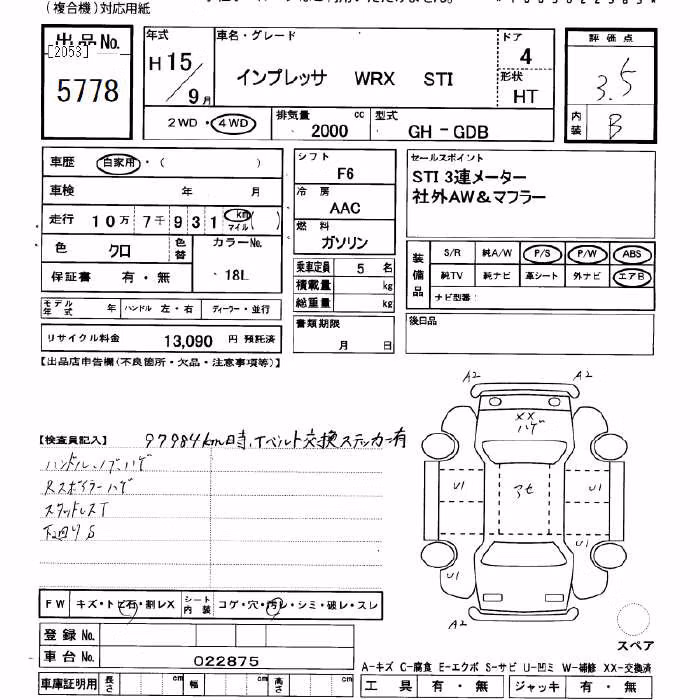 (複合機)対応用紙
出品No.
[2053]
5778
年式
H15/9月
車名・グレード
インプレッサ WRX STI
ドア
4
形状
HT
評価点
3.5
内装
B
2WD・4WD
排気量
2000 cc
型式
GH-GDB
車歴 自家用・( )
車検 年 月
走行 10万 7千 9 3 1 km マイル ( )
色 クロ
色替
カラーNo.
18L
保証書 有・無
モデル年式 年
ハンドル 左・右
ディーラー・並行
リサイクル料金 13,090 円 預託済
シフト
F6
冷房
AAC
燃料
ガソリン
乗車定員 5 名
積載量 kg
総重量 kg
書類期限
月 日
セールスポイント
STI 3連メーター
社外AW&マフラー
装備品
S/R 純A/W P/S P/W ABS
純TV 純ナビ 革シート 外ナビ エアB
ナビ型番:
後日品
【出品店申告欄(不良箇所・欠品・注意事項等)】
【検査員記入】 97984km時、Tベルト交換ステッカー有
ハンドル、ノブハゲ
Rスポイラーハゲ
スタッドレスT
下回りS
A2
A2
XX
ハゲ
U1
アセ
U1
U1
A2
スペア
FW キズ・トビ石・割レX
シート内装 コゲ・穴・汚レ・シミ・破レ・スレ
登録No.
車台No. 022875
車庫証明用 長さ cm 幅 cm 高さ cm
A-キズ C-腐食 E-エクボ S-サビ U-凹ミ W-補修 XX-交換済
工具 有・無 ジャッキ 有・無